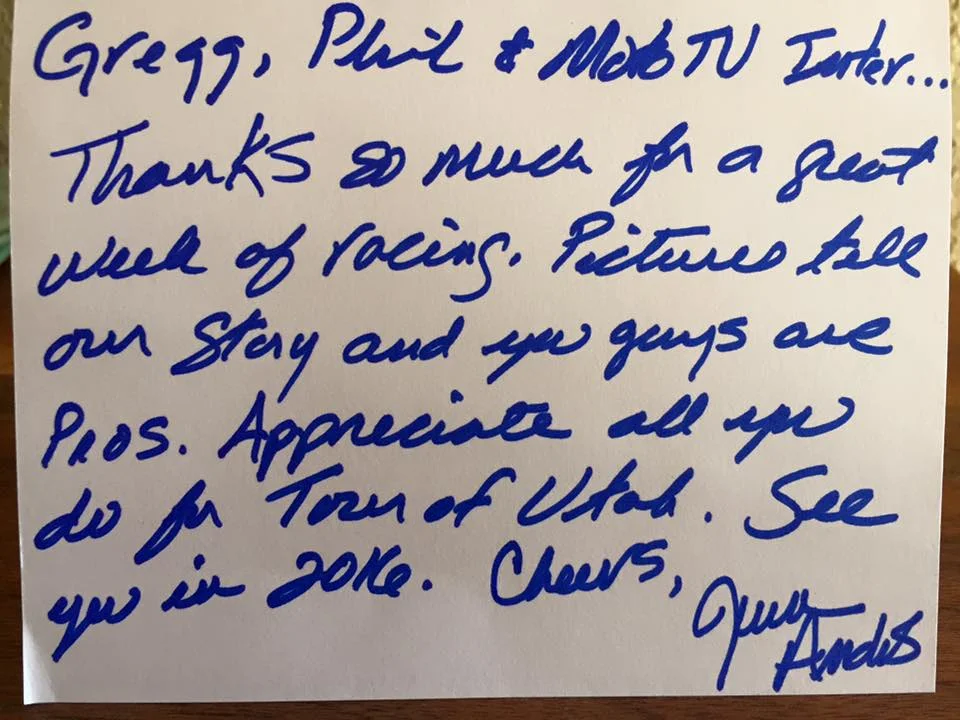 Gregg, Phil & MotoTV Inter...
Thanks so much for a great
week of racing. Pictures tell
our Story and you guys are
Pros. Appreciate all you
do for Tour of Utah. See
you in 2016. Cheers,
Andis